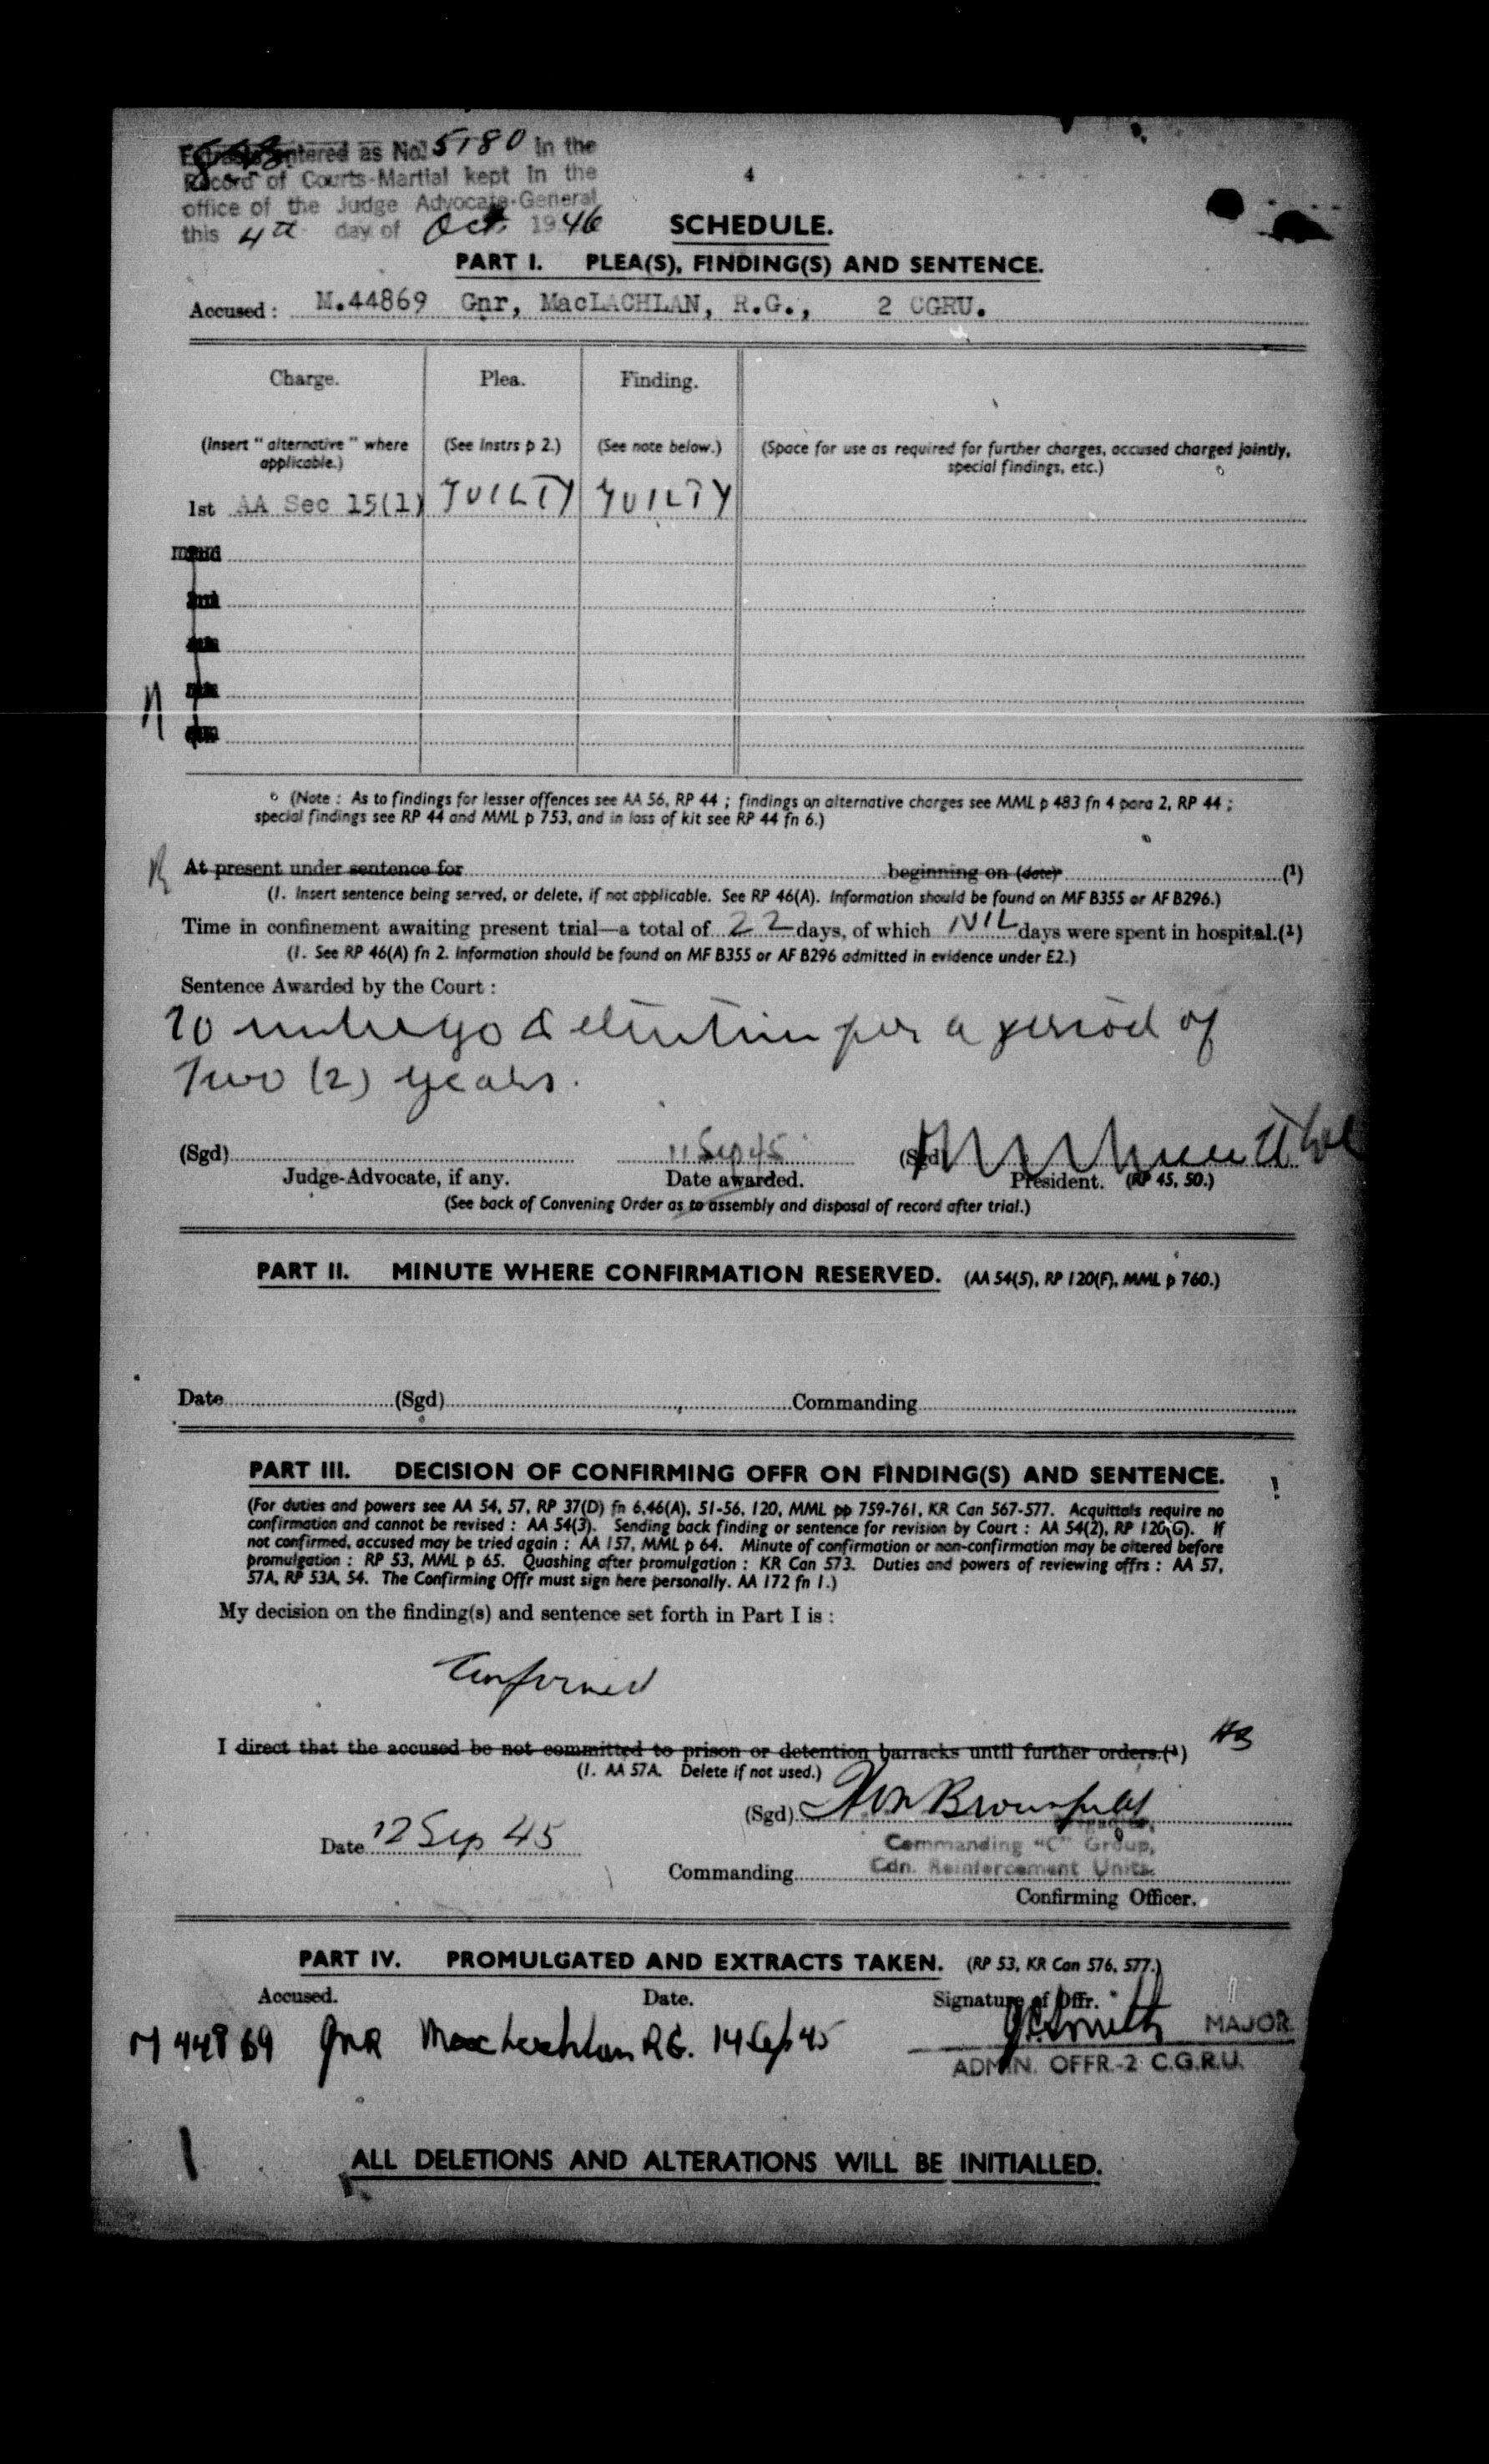 entered as No. 5180 in the
Record of Courts-Martial kept in the
office of the Judge Advocate-General
this 4th day of Oct. 1946
4
SCHEDULE.
PART I. PLEA(S), FINDING(S) AND SENTENCE.
Accused: M.44869 Gnr, MacLACHLAN, R.G., 2 CGRU.
Charge. Plea. Finding.
(Insert "alternative" where applicable.) (See Instrs p 2.) (See note below.) (Space for use as required for further charges, accused charged jointly,
special findings, etc.)
1st AA Sec 15(1) GUILTY GUILTY
(Note: As to findings for lesser offences see AA 56, RP 44; findings on alternative charges see MML p 483 fn 4 para 2, RP 44;
special findings see RP 44 and MML p 753, and in loss of kit see RP 44 fn 6.)
At present under sentence for beginning on (date) (1)
(1. Insert sentence being served, or delete, if not applicable. See RP 46(A). Information should be found on MF B355 or AF B296.)
Time in confinement awaiting present trial—a total of 22 days, of which NIL days were spent in hospital.(1)
(1. See RP 46(A) fn 2. Information should be found on MF B355 or AF B296 admitted in evidence under E2.)
Sentence Awarded by the Court:
To undergo detention for a period of
Two (2) years.
(Sgd) 11 Sep 45 (Sgd)
Judge-Advocate, if any. Date awarded. President. (RP 45, 50.)
(See back of Convening Order as to assembly and disposal of record after trial.)
PART II. MINUTE WHERE CONFIRMATION RESERVED. (AA 54(5), RP 120(F), MML p 760.)
Date (Sgd) Commanding
PART III. DECISION OF CONFIRMING OFFR ON FINDING(S) AND SENTENCE.
(For duties and powers see AA 54, 57, RP 37(D) fn 6,46(A), 51-56, 120, MML pp 759-761, KR Can 567-577. Acquittals require no
confirmation and cannot be revised: AA 54(3). Sending back finding or sentence for revision by Court: AA 54(2), RP 120(G). If
not confirmed, accused may be tried again: AA 157, MML p 64. Minute of confirmation or non-confirmation may be altered before
promulgation: RP 53, MML p 65. Quashing after promulgation: KR Can 573. Duties and powers of reviewing offrs: AA 57,
57A, RP 53A, 54. The Confirming Offr must sign here personally. AA 172 fn 1.)
My decision on the finding(s) and sentence set forth in Part I is:
Confirmed
I direct that the accused be not committed to prison or detention barracks until further orders.(1)
(1. AA 57A. Delete if not used.)
(Sgd) Brownfield
Date 12 Sep 45
Commanding "C" Group,
Commanding Cdn. Reinforcement Units.
Confirming Officer.
PART IV. PROMULGATED AND EXTRACTS TAKEN. (RP 53, KR Can 576, 577.)
Accused. Date. Signature of Offr.
M 44869 GNR MacLachlan R.G. 14 Sep 45 Smith MAJOR
ADMIN. OFFR.-2 C.G.R.U.
ALL DELETIONS AND ALTERATIONS WILL BE INITIALLED.